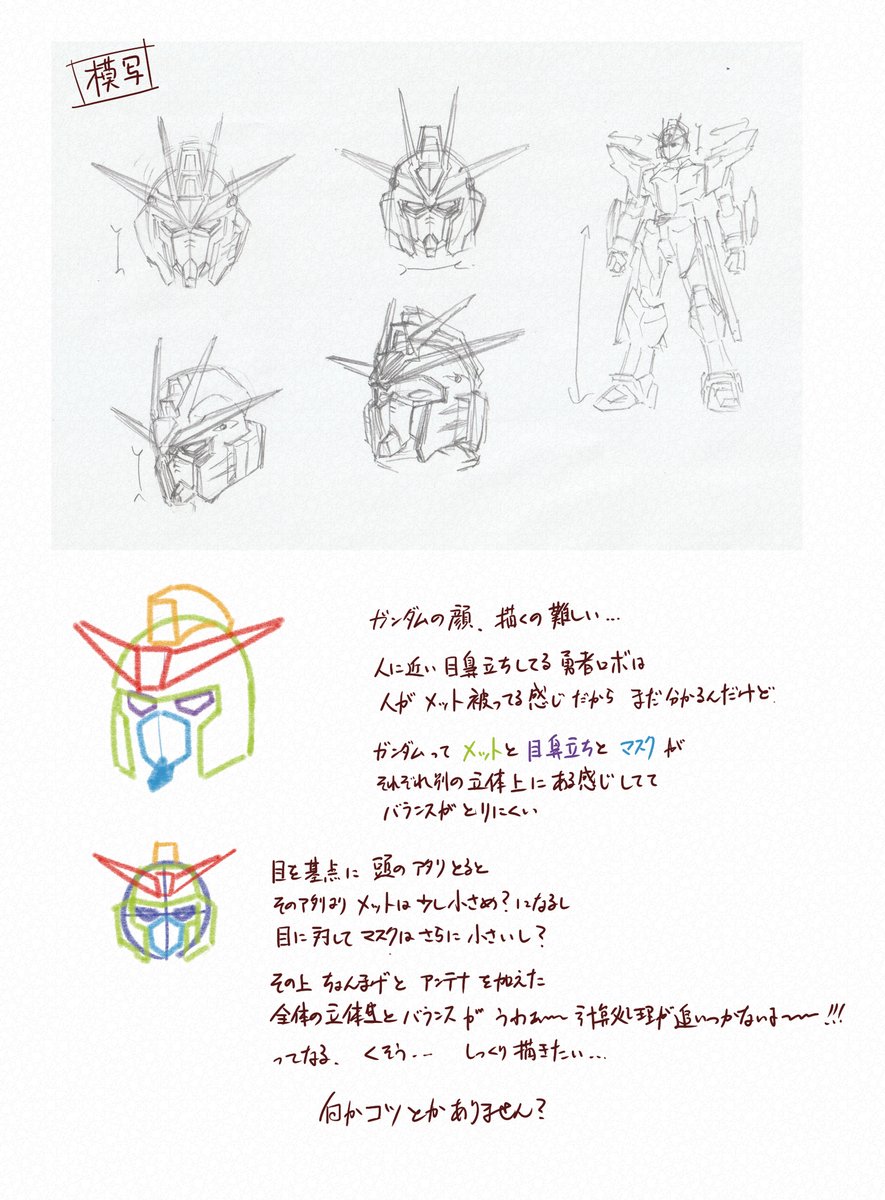 模写
ガンダムの顔、描くの難しい…
人に近い目鼻立ちしてる勇者ロボは
人がメット被ってる感じだから まだ分かるんだけど
ガンダムって メットと 目鼻立ちと マスク が
それぞれ別の立体上にある感じしてて
バランスがとりにくい
目を基点に 頭のアタリとると
そのアタリより メットは少し小さめ?になるし
目に対して マスクはさらに小さいし?
その上 ちょんまげと アンテナを加えた
全体の立体生とバランスが うわぁ〜〜計算処理が追いつかないよ〜〜!!!
ってなる、くそう… しっくり描きたい…
何かコツとかありません?